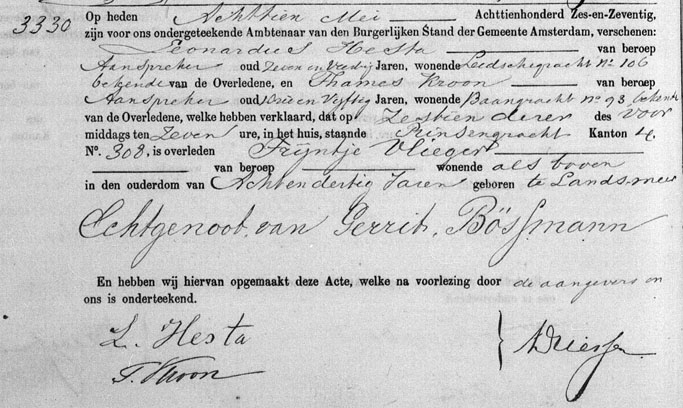 3330
Op heden Achttien Mei Achttienhonderd Zes-en-Zeventig,
zijn voor ons ondergeteekende Ambtenaar van den Burgerlijken Stand der Gemeente Amsterdam, verschenen:
Leonardus Hesta van beroep
Aanspreker oud Zeven en Veertig Jaren, wonende Leidschegracht No 106
bekende van de Overledene, en Thames Kroon van beroep
Aanspreker oud en Vyftig Jaren, wonende Baangracht no 93 bekende
van de Overledene, welke hebben verklaard, dat op Zestien dezer des Voor
middags ten Zeven ure, in het huis, staande Prinsengracht Kanton 4.
No. 308, is overleden Trijntje Vlieger
van beroep wonende als boven
in den ouderdom van Achtendertig Jaren geboren te Landsmeer
Echtgenoot van Gerrit Bössmann
En hebben wij hiervan opgemaakt deze Acte, welke na voorlezing door de aangevers en
ons is onderteekend.
L. Hesta
T. Kroon